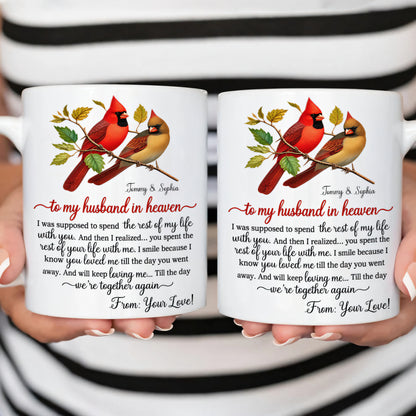 Tommy & Sophia
to my husband in heaven
I was supposed to spend the rest of my life
with you. And then I realized... you spent the
rest of your life with me. I smile because I
know you loved me till the day you went
away. And will keep loving me... Till the day
we're together again
From: Your Love!
Tommy & Sophia
to my husband in heaven
I was supposed to spend the rest of my life
with you. And then I realized... you spent the
rest of your life with me. I smile because I
know you loved me till the day you went
away. And will keep loving me... Till the day
we're together again
From: Your Love!